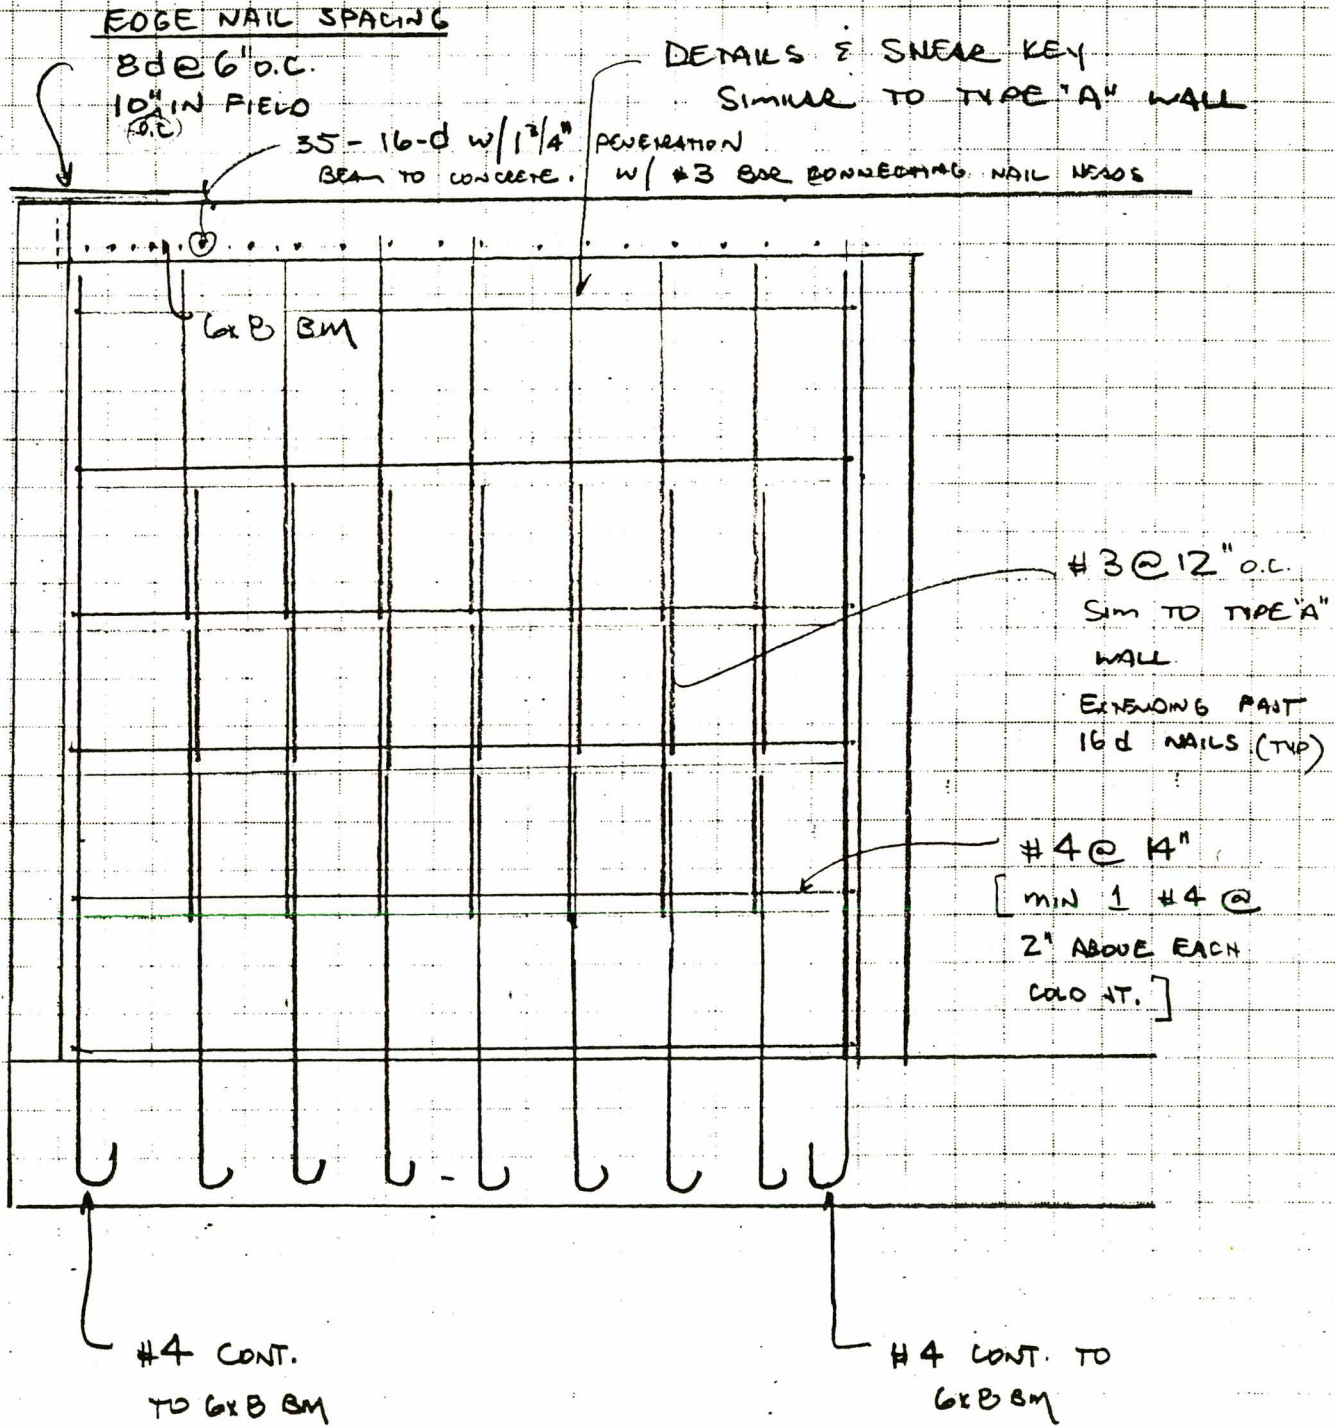 EDGE NAIL SPACING
8d @ 6" O.C.
10" IN FIELD
O.C.
DETAILS & SHEAR KEY
SIMILAR TO TYPE "A" WALL
35 - 16-d W/ 1 3/4" PENETRATION
BEAM TO CONCRETE. W/ #3 BAR CONNECTING NAIL HEADS
6x8 BM
#3 @ 12" O.C.
SIM TO TYPE "A"
WALL
EXTENDING PAST
16 d NAILS (TYP)
#4 @ 14"
[ MIN 1 #4 @
2" ABOVE EACH
COLD JT. ]
#4 CONT.
TO 6x8 BM
#4 CONT. TO
6x8 BM